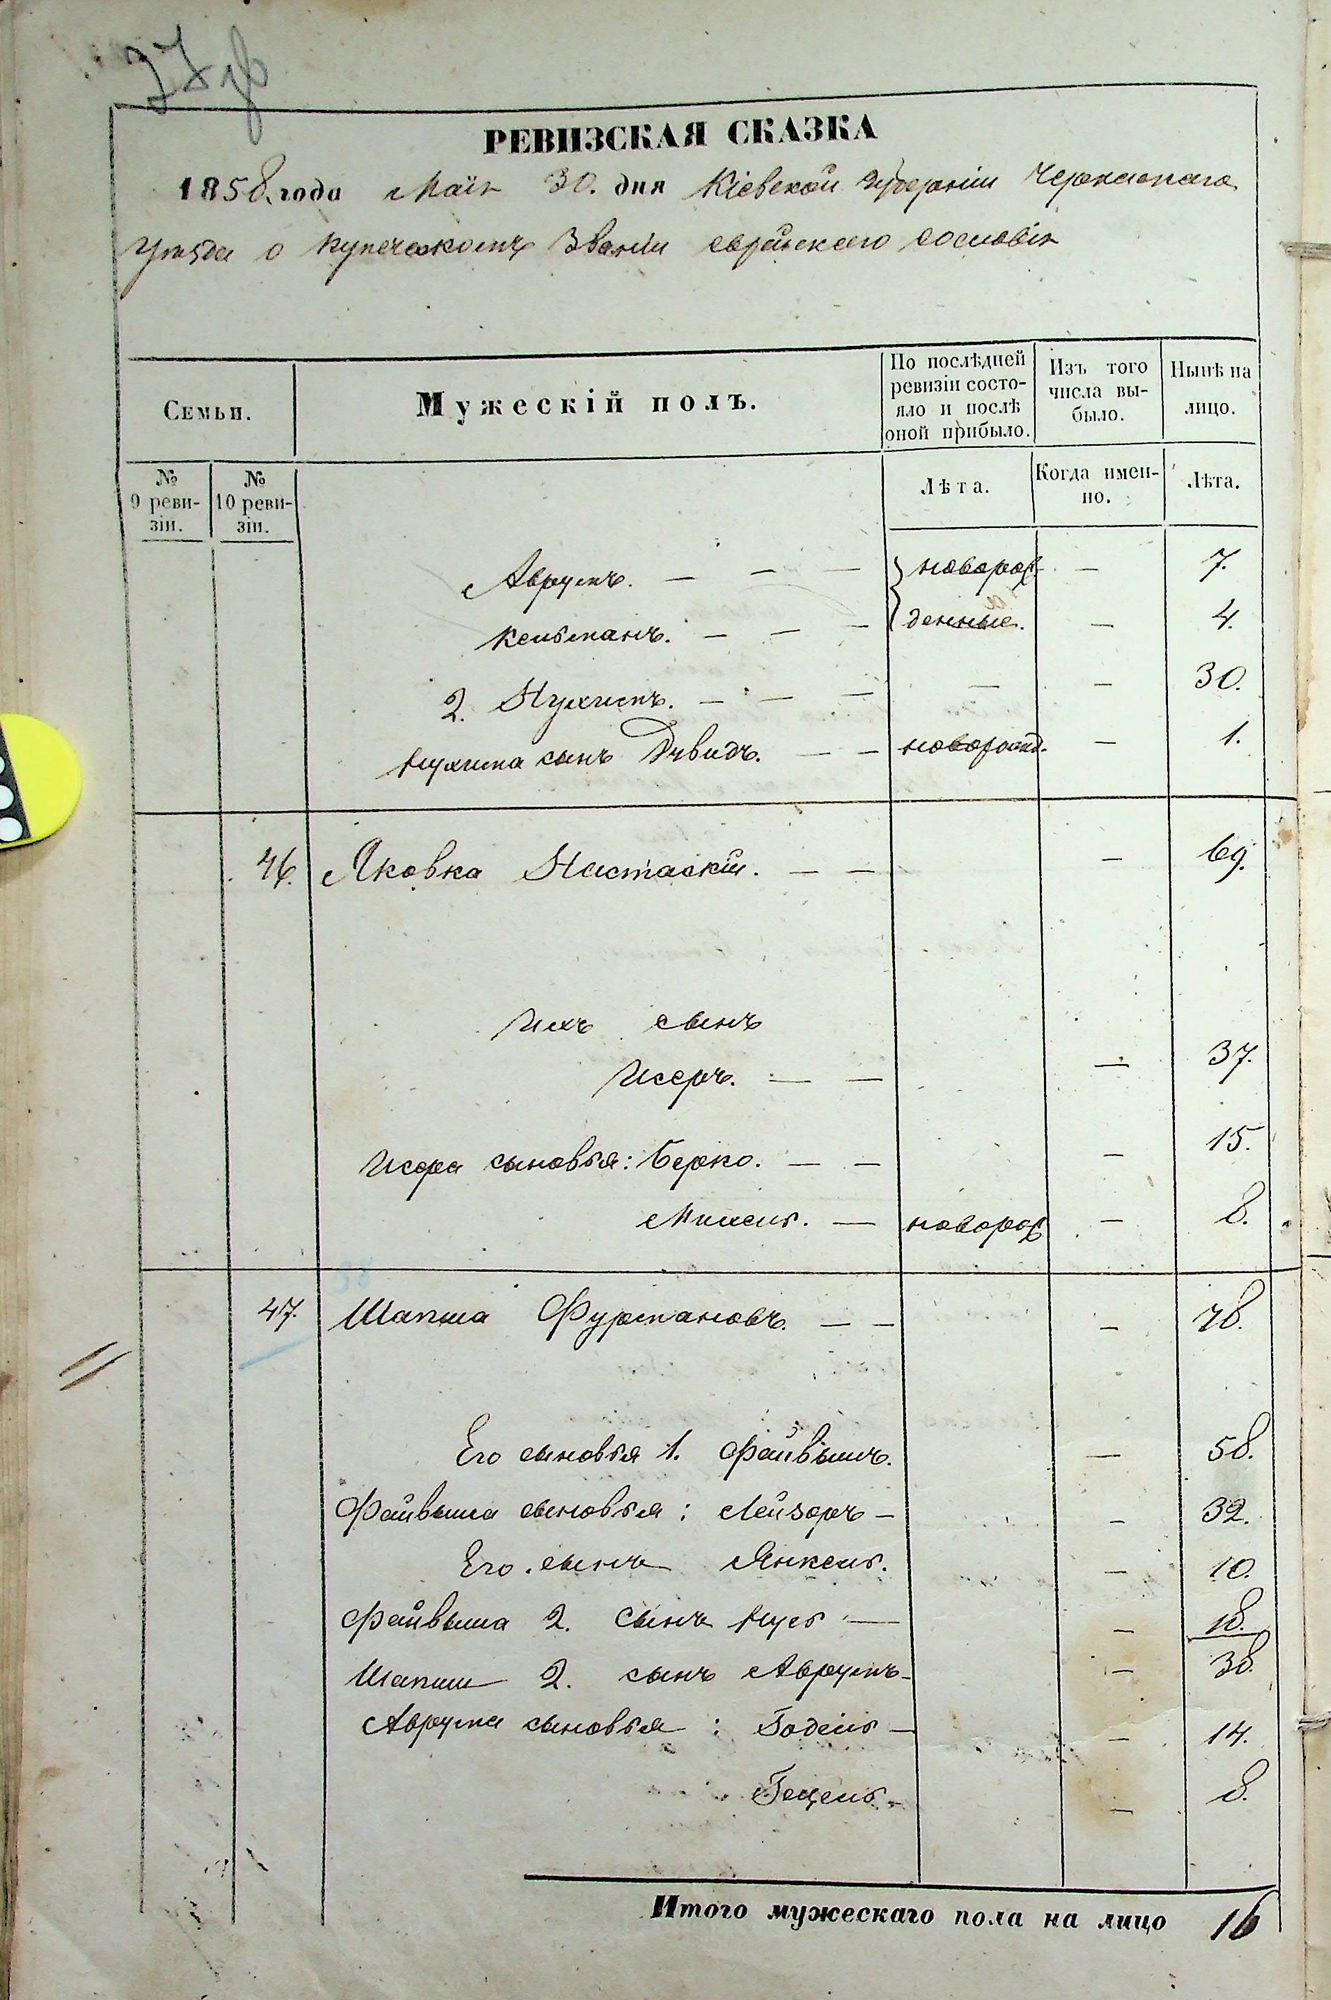 РЕВИЗСКАЯ СКАЗКА
1858 года Маія 30. дня Кіевской Губерніи Черкаскаго
Уезда о купеческомъ Званіи еврейскаго сословія
Семьи. Мужескій полъ. По послѣдней ревизіи состояло и послѣ оной прибыло. Изъ того числа выбыло. Нынѣ на лицо.
№ 9 ревизіи. № 10 ревизіи. Лѣта. Когда именно. Лѣта.
Аврумъ. — — — новорож- — 7.
Кельманъ. — — — денные. — 4.
2. Нухимъ. — — — — — 30.
Нухима сынъ Дувидъ. — — новорожд. — 1.
46. Яковка Настаскій. — — — 69.
Ихъ сынъ
Исеръ. — — — 37.
Исера сыновья: Берко. — — — 15.
Мисель. — новорож — 8.
47. Шапша Фурмановъ. — — — 78.
Его сыновья 1. Файвышъ. — 58.
Файвыша сыновья: Лейзоръ — — 32.
Его сынъ Янкель. — 10.
Файвыша 2. сынъ Нусь — — 18.
Шапши 2. сынъ Аврумъ — — 38.
Аврума сыновья: Годель — — 14.
Гецель — — 8.
Итого мужескаго пола на лицо 16